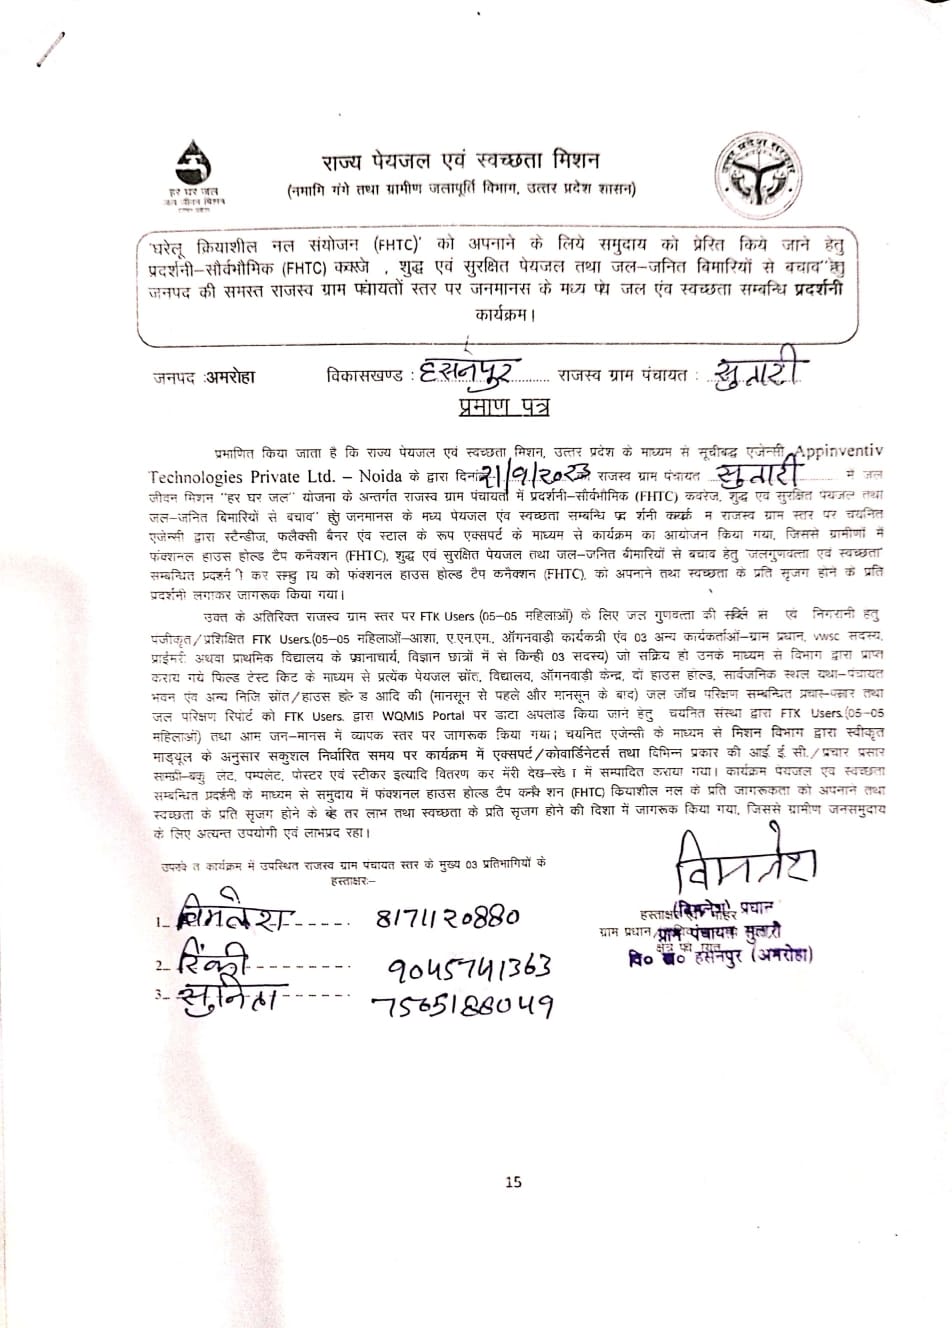 हर घर जल
जल जीवन मिशन
उत्तर प्रदेश सरकार
राज्य पेयजल एवं स्वच्छता मिशन
(नमामि गंगे तथा ग्रामीण जलापूर्ति विभाग, उत्तर प्रदेश शासन)
'घरेलू क्रियाशील नल संयोजन (FHTC)' को अपनाने के लिये समुदाय को प्रेरित किये जाने हेतु
प्रदर्शनी–सौर्वभौमिक (FHTC) , शुद्ध एवं सुरक्षित पेयजल तथा जल–जनित बिमारियों से बचाव"
जनपद की समस्त राजस्व ग्राम पंचायतों स्तर पर जनमानस के मध्य जल एंव स्वच्छता सम्बन्धि प्रदर्शनी
कार्यक्रम।
जनपद :अमरोहा विकासखण्ड : हसनपुर राजस्व ग्राम पंचायत : सुतारी
प्रमाण पत्र
प्रमाणित किया जाता है कि राज्य पेयजल एवं स्वच्छता मिशन, उत्तर प्रदेश के माध्यम से सूचीबद्ध एजेन्सी Appinventiv
Technologies Private Ltd. – Noida के द्वारा दिनांक 21/9/2023 राजस्व ग्राम पंचायत सुतारी में जल
जीवन मिशन "हर घर जल" योजना के अन्तर्गत राजस्व ग्राम पंचायतों में प्रदर्शनी–सौर्वभौमिक (FHTC) कवरेज, शुद्ध एवं सुरक्षित पेयजल तथा
जल–जनित बिमारियों से बचाव" जनमानस के मध्य पेयजल एंव स्वच्छता सम्बन्धि राजस्व ग्राम स्तर पर चयनित
एजेन्सी द्वारा स्टैन्डीज, फलैक्सी बैनर एंव स्टाल के रूप एक्सपर्ट के माध्यम से कार्यक्रम का आयोजन किया गया, जिससे ग्रामीणों में
फंक्शनल हाउस होल्ड टैप कनैक्शन (FHTC), शुद्ध एवं सुरक्षित पेयजल तथा जल–जनित बीमारियों से बचाव हेतु 'जलगुणवत्ता एवं स्वच्छता'
सम्बन्धित कर को फंक्शनल हाउस होल्ड टैप कनैक्शन (FHTC), को अपनाने तथा स्वच्छता के प्रति सृजग होने के प्रति
प्रदर्शनी लगाकर जागरूक किया गया।
उक्त के अतिरिक्त राजस्व ग्राम स्तर पर FTK Users (05–05 महिलाओं) के लिए जल गुणवत्ता की एवं निगरानी हेतु
पंजीकृत/प्रशिक्षित FTK Users.(05–05 महिलाओं–आशा, ए.एन.एम., ऑगनवाड़ी कार्यकत्री एंव 03 अन्य कार्यकर्ताओं–ग्राम प्रधान, vwsc सदस्य,
प्राईमरी अथवा प्राथमिक विद्यालय के प्रधानाचार्य, विज्ञान छात्रों में से किन्ही 03 सदस्य) जो सक्रिय हो उनके माध्यम से विभाग द्वारा प्राप्त
कराय गये फिल्ड टेस्ट किट के माध्यम से प्रत्येक पेयजल स्रोत, विद्यालय, ऑगनवाड़ी केन्द्र, दो हाउस होल्ड, सार्वजनिक स्थल यथा–पंचायत
भवन एंव अन्य निजि स्रोत/हाउस होल्ड आदि की (मानसून से पहले और मानसून के बाद) जल जॉच परिक्षण सम्बन्धित प्रचार–प्रसार तथा
जल परिक्षण रिपोर्ट को FTK Users. द्वारा WQMIS Portal पर डाटा अपलाड किया जाने हेतु चयनित संस्था द्वारा FTK Users.(05–05
महिलाओ) तथा आम जन–मानस में व्यापक स्तर पर जागरूक किया गया; चयनित एजेन्सी के माध्यम से मिशन विभाग द्वारा स्वीकृत
माड्यूल के अनुसार सकुशल निर्धारित समय पर कार्यक्रम में एक्सपर्ट/कोवार्डिनेटर्स तथा विभिन्न प्रकार की आई.ई.सी./प्रचार प्रसार
लेट, पम्पलेट, पोस्टर एवं स्टीकर इत्यादि वितरण कर मेरी देख–रेख में सम्पादित कराया गया। कार्यक्रम पेयजल एंव स्वच्छता
सम्बन्धित प्रदर्शनी के माध्यम से समुदाय में फंक्शनल हाउस होल्ड टैप (FHTC) कियाशील नल के प्रति जागरूकता को अपनाने तथा
स्वच्छता के प्रति सृजग होने के तर लाभ तथा स्वच्छता के प्रति सृजग होने की दिशा में जागरूक किया गया, जिससे ग्रामीण जनसमुदाय
के लिए अत्यन्त उपयोगी एवं लाभप्रद रहा।
कार्यक्रम में उपस्थित राजस्व ग्राम पंचायत स्तर के मुख्य 03 प्रतिभागियों के
हस्ताक्षर:–
विमलेश
1_ विमलेश 8171120880
2_ रिंकी 9045741363
3_ सुनिता 7565188049
हस्ताक्षर (बिमलेश) प्रधान
ग्राम प्रधान ग्राम पंचायत सुतारी
वि० ख० हसनपुर (अमरोहा)
15